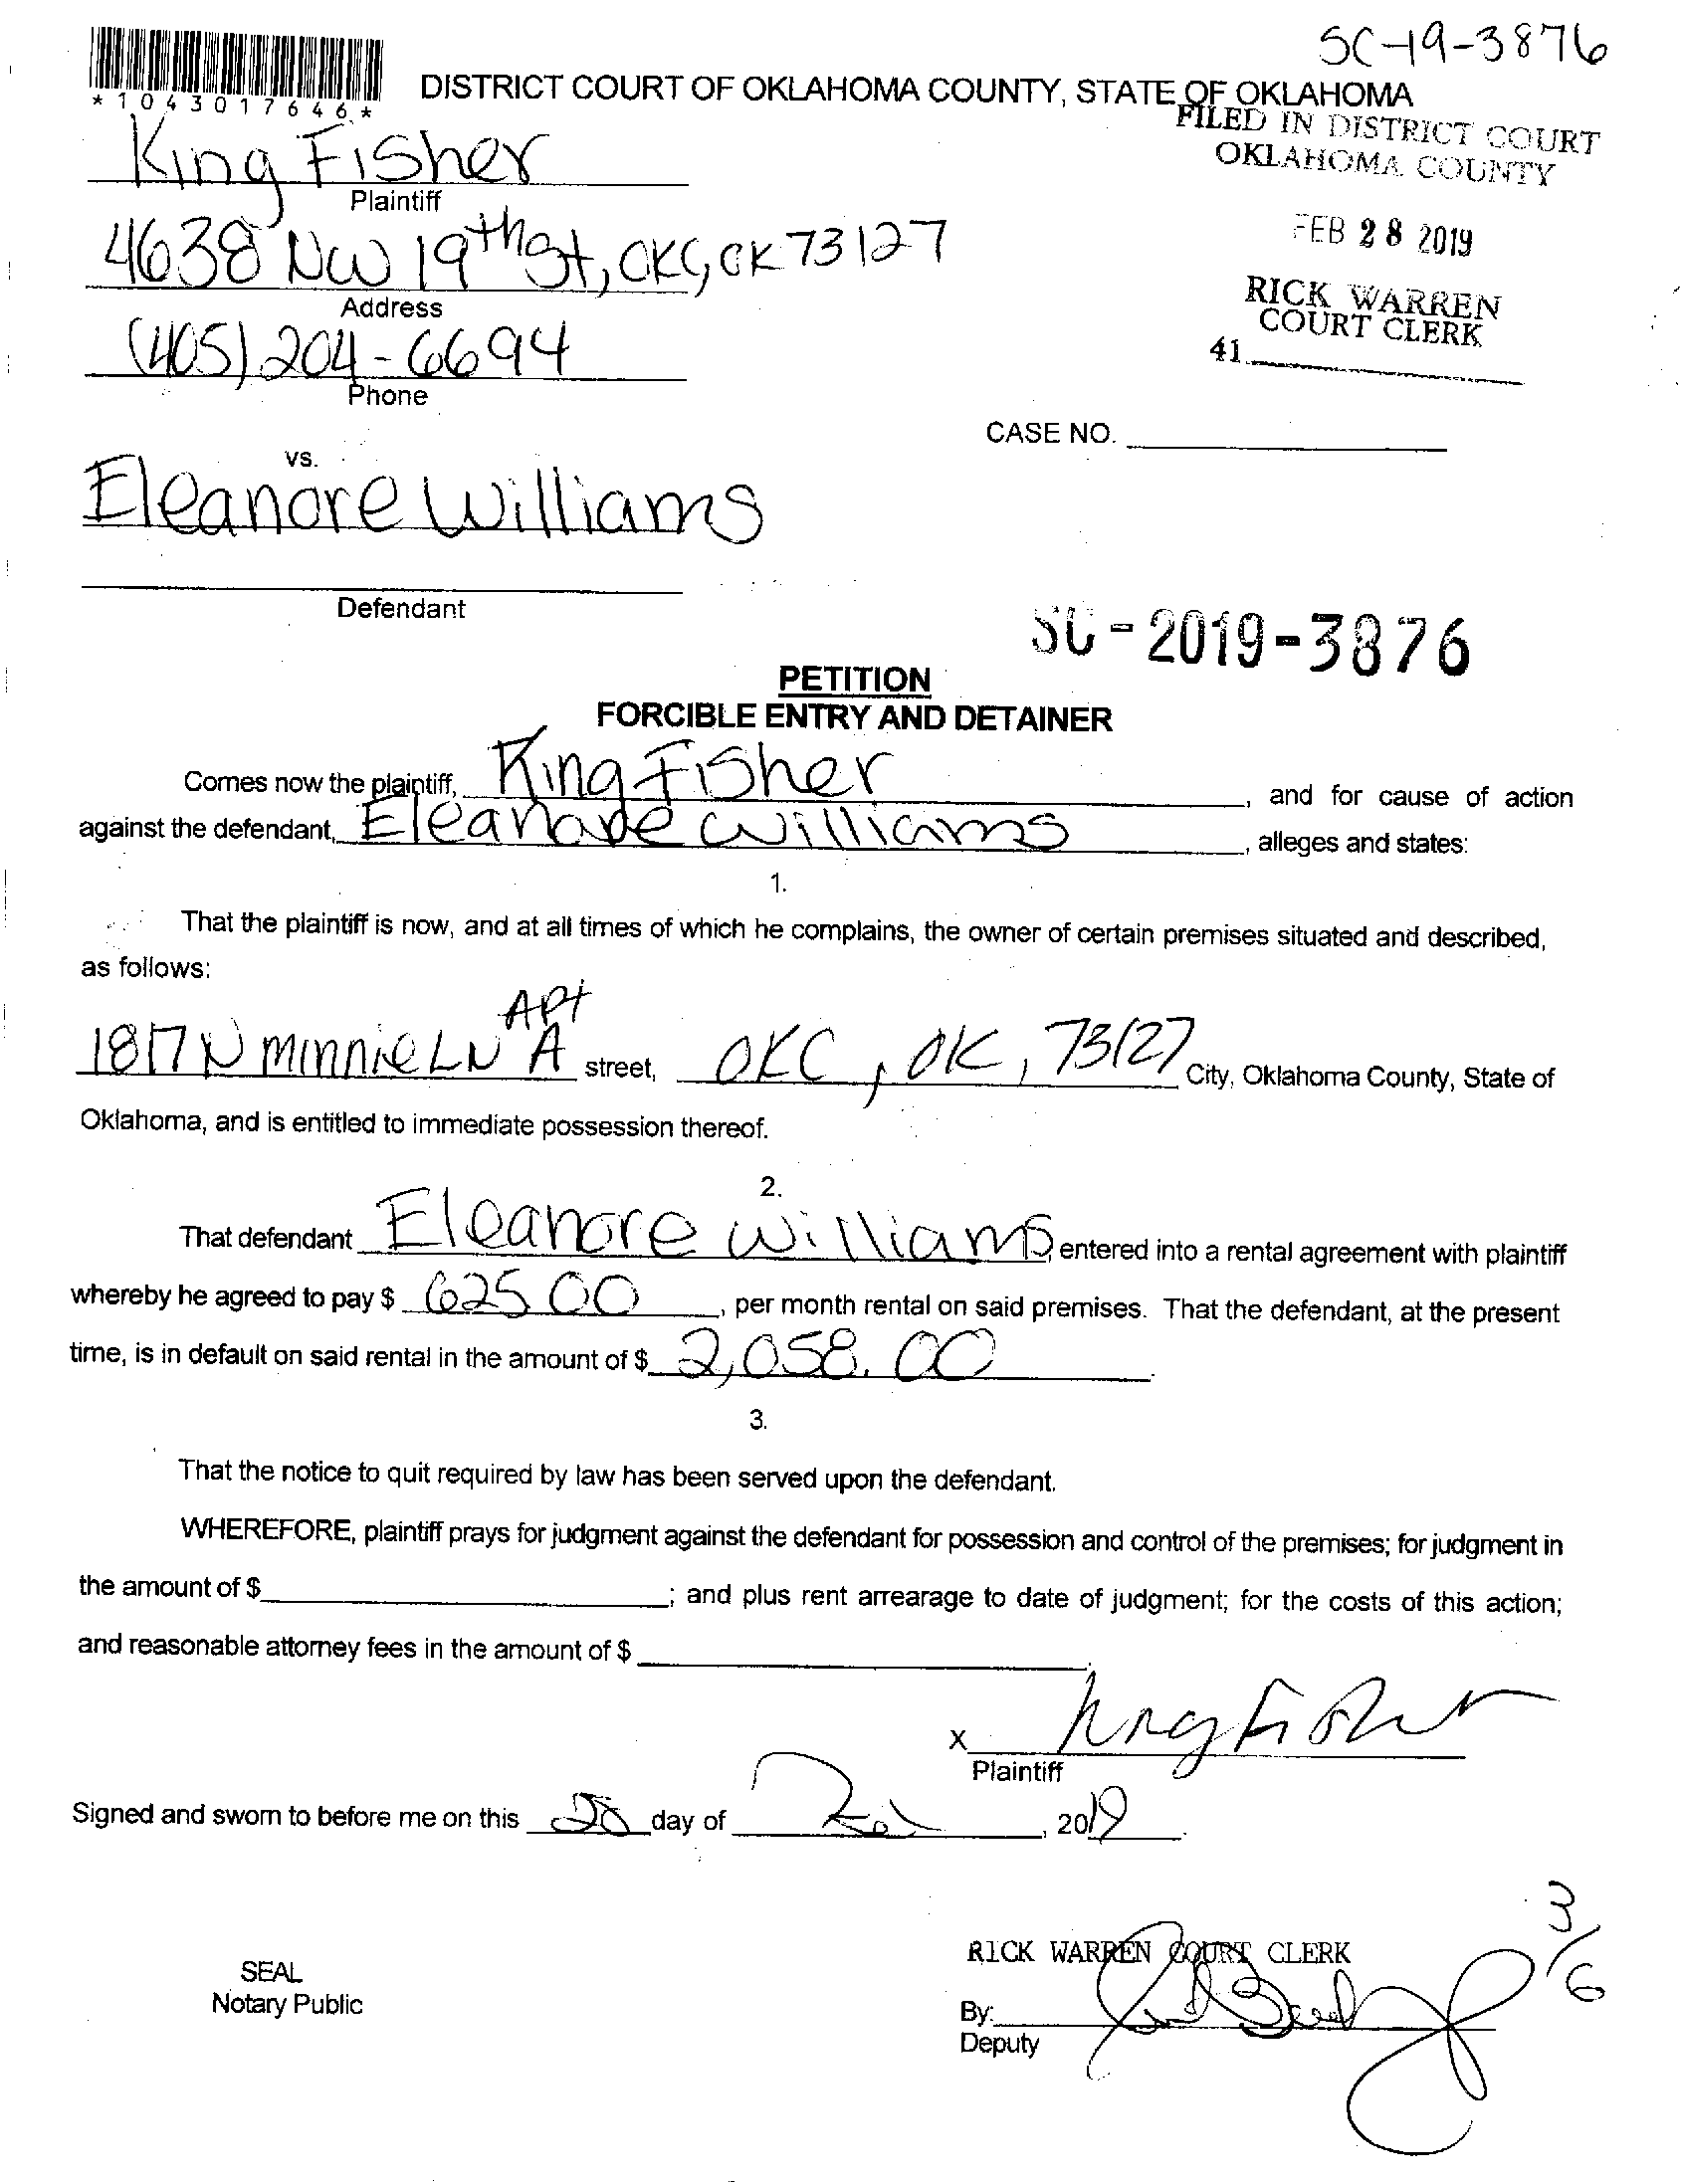 SC-19-3876
*1043017646*
DISTRICT COURT OF OKLAHOMA COUNTY, STATE OF OKLAHOMA
FILED IN DISTRICT COURT
OKLAHOMA COUNTY
King Fisher
Plaintiff
4638 NW 19th St, OKC, OK 73127
Address
FEB 28 2019
RICK WARREN
COURT CLERK
41
(405) 204-6694
Phone
CASE NO.
vs.
Eleanore Williams
Defendant
SC-2019-3876
PETITION
FORCIBLE ENTRY AND DETAINER
Comes now the plaintiff, King Fisher, and for cause of action
against the defendant, Eleanore Williams, alleges and states:
1.
That the plaintiff is now, and at all times of which he complains, the owner of certain premises situated and described,
as follows:
Apt
1817 N Minnie LN A street, OKC, OK, 73127 City, Oklahoma County, State of
Oklahoma, and is entitled to immediate possession thereof.
2.
That defendant Eleanore Williams entered into a rental agreement with plaintiff
whereby he agreed to pay $ 625 00, per month rental on said premises. That the defendant, at the present
time, is in default on said rental in the amount of $ 2,058.00.
3.
That the notice to quit required by law has been served upon the defendant.
WHEREFORE, plaintiff prays for judgment against the defendant for possession and control of the premises; for judgment in
the amount of $ ; and plus rent arrearage to date of judgment; for the costs of this action;
and reasonable attorney fees in the amount of $ .
x King Fisher
Plaintiff
Signed and sworn to before me on this 28 day of Feb, 2019.
3/6
RICK WARREN COURT CLERK
SEAL
Notary Public
By:
Deputy